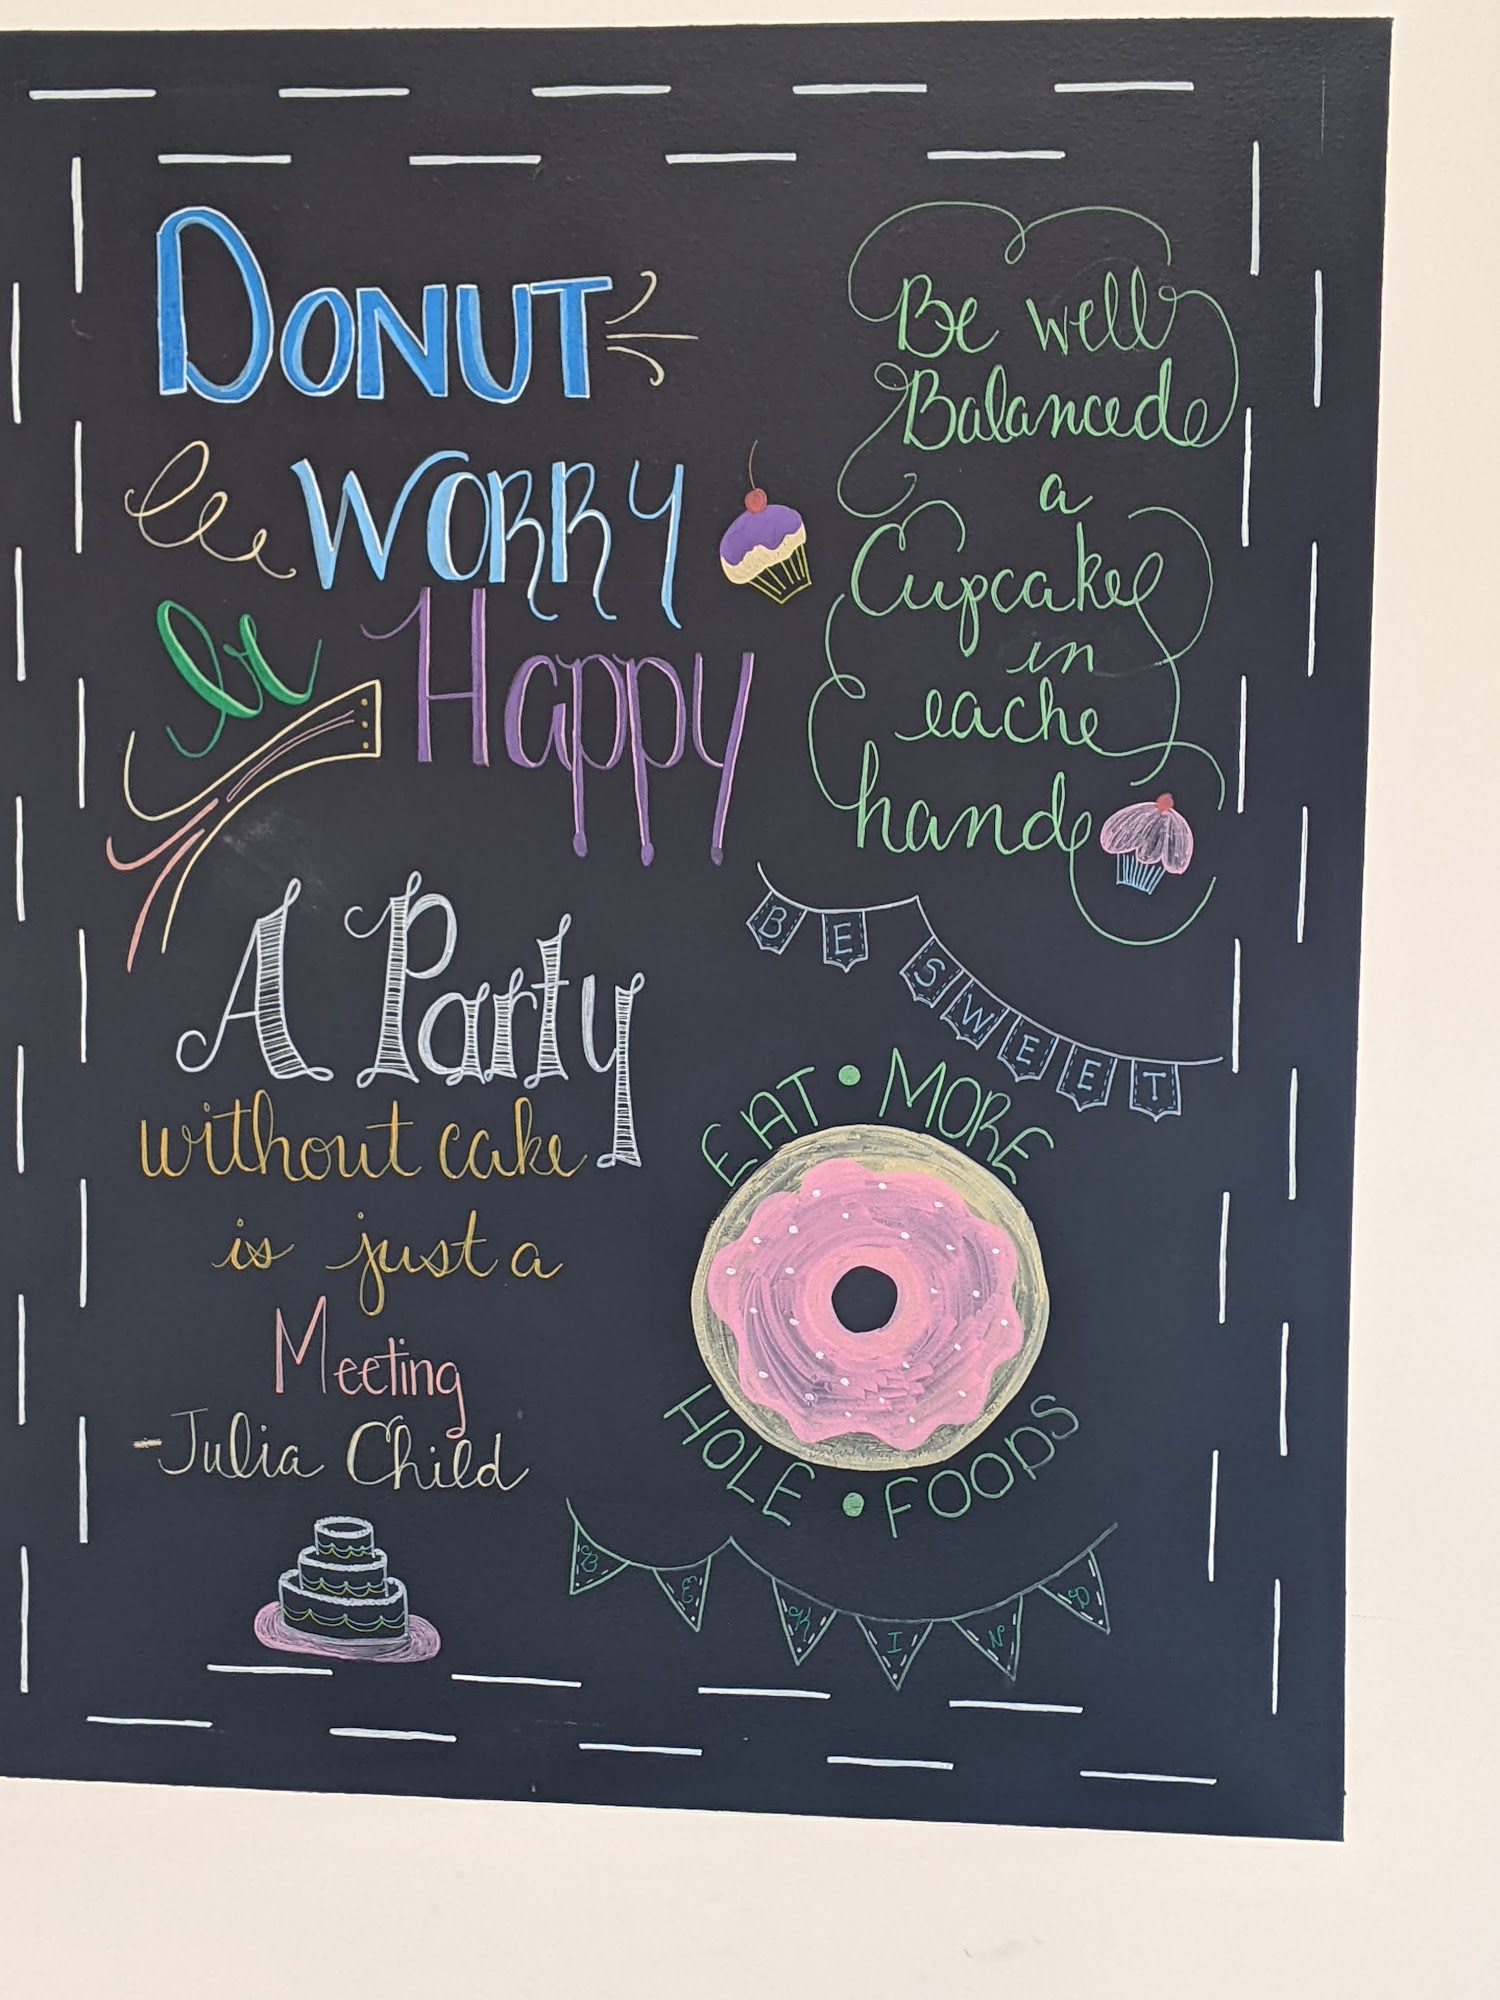 DONUT
WORRY
be Happy
A Party
without cake
is just a
Meeting
-Julia Child
Be well
Balanced
a
Cupcake
in
each
hand
BE SWEET
EAT • MORE
HOLE • FOODS
BE KIND